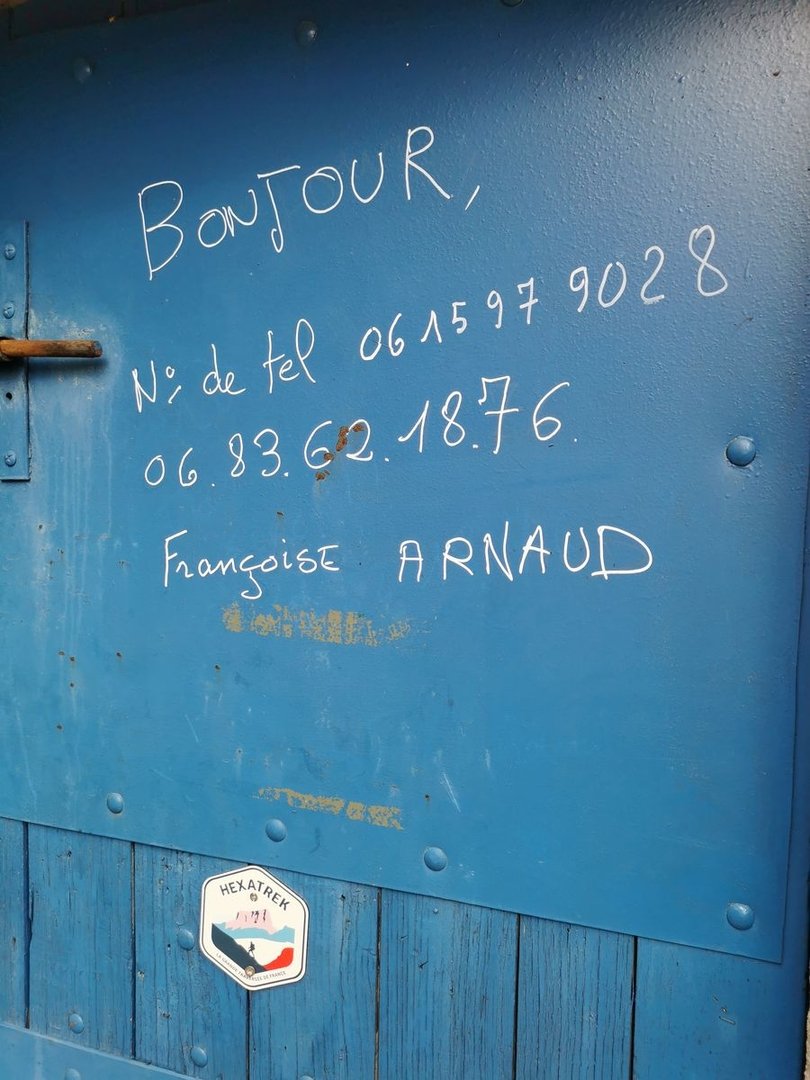 BONJOUR,
N°: de tel 06 15 97 9028
06.83.62.18.76.
Françoise ARNAUD
HEXATREK
LA GRANDE TRAVERSÉE DE FRANCE